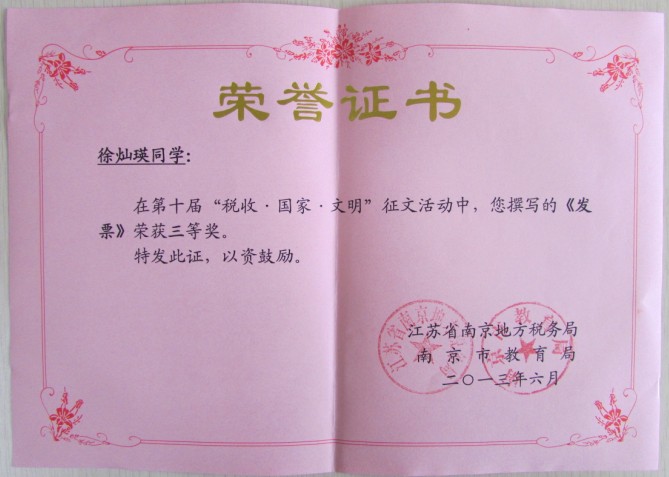 荣誉证书
徐灿瑛同学：
在第十届“税收·国家·文明”征文活动中，您撰写的《发
票》荣获三等奖。
特发此证，以资鼓励。
江苏省南京地方税务局
南京市教育局
二〇一三年六月